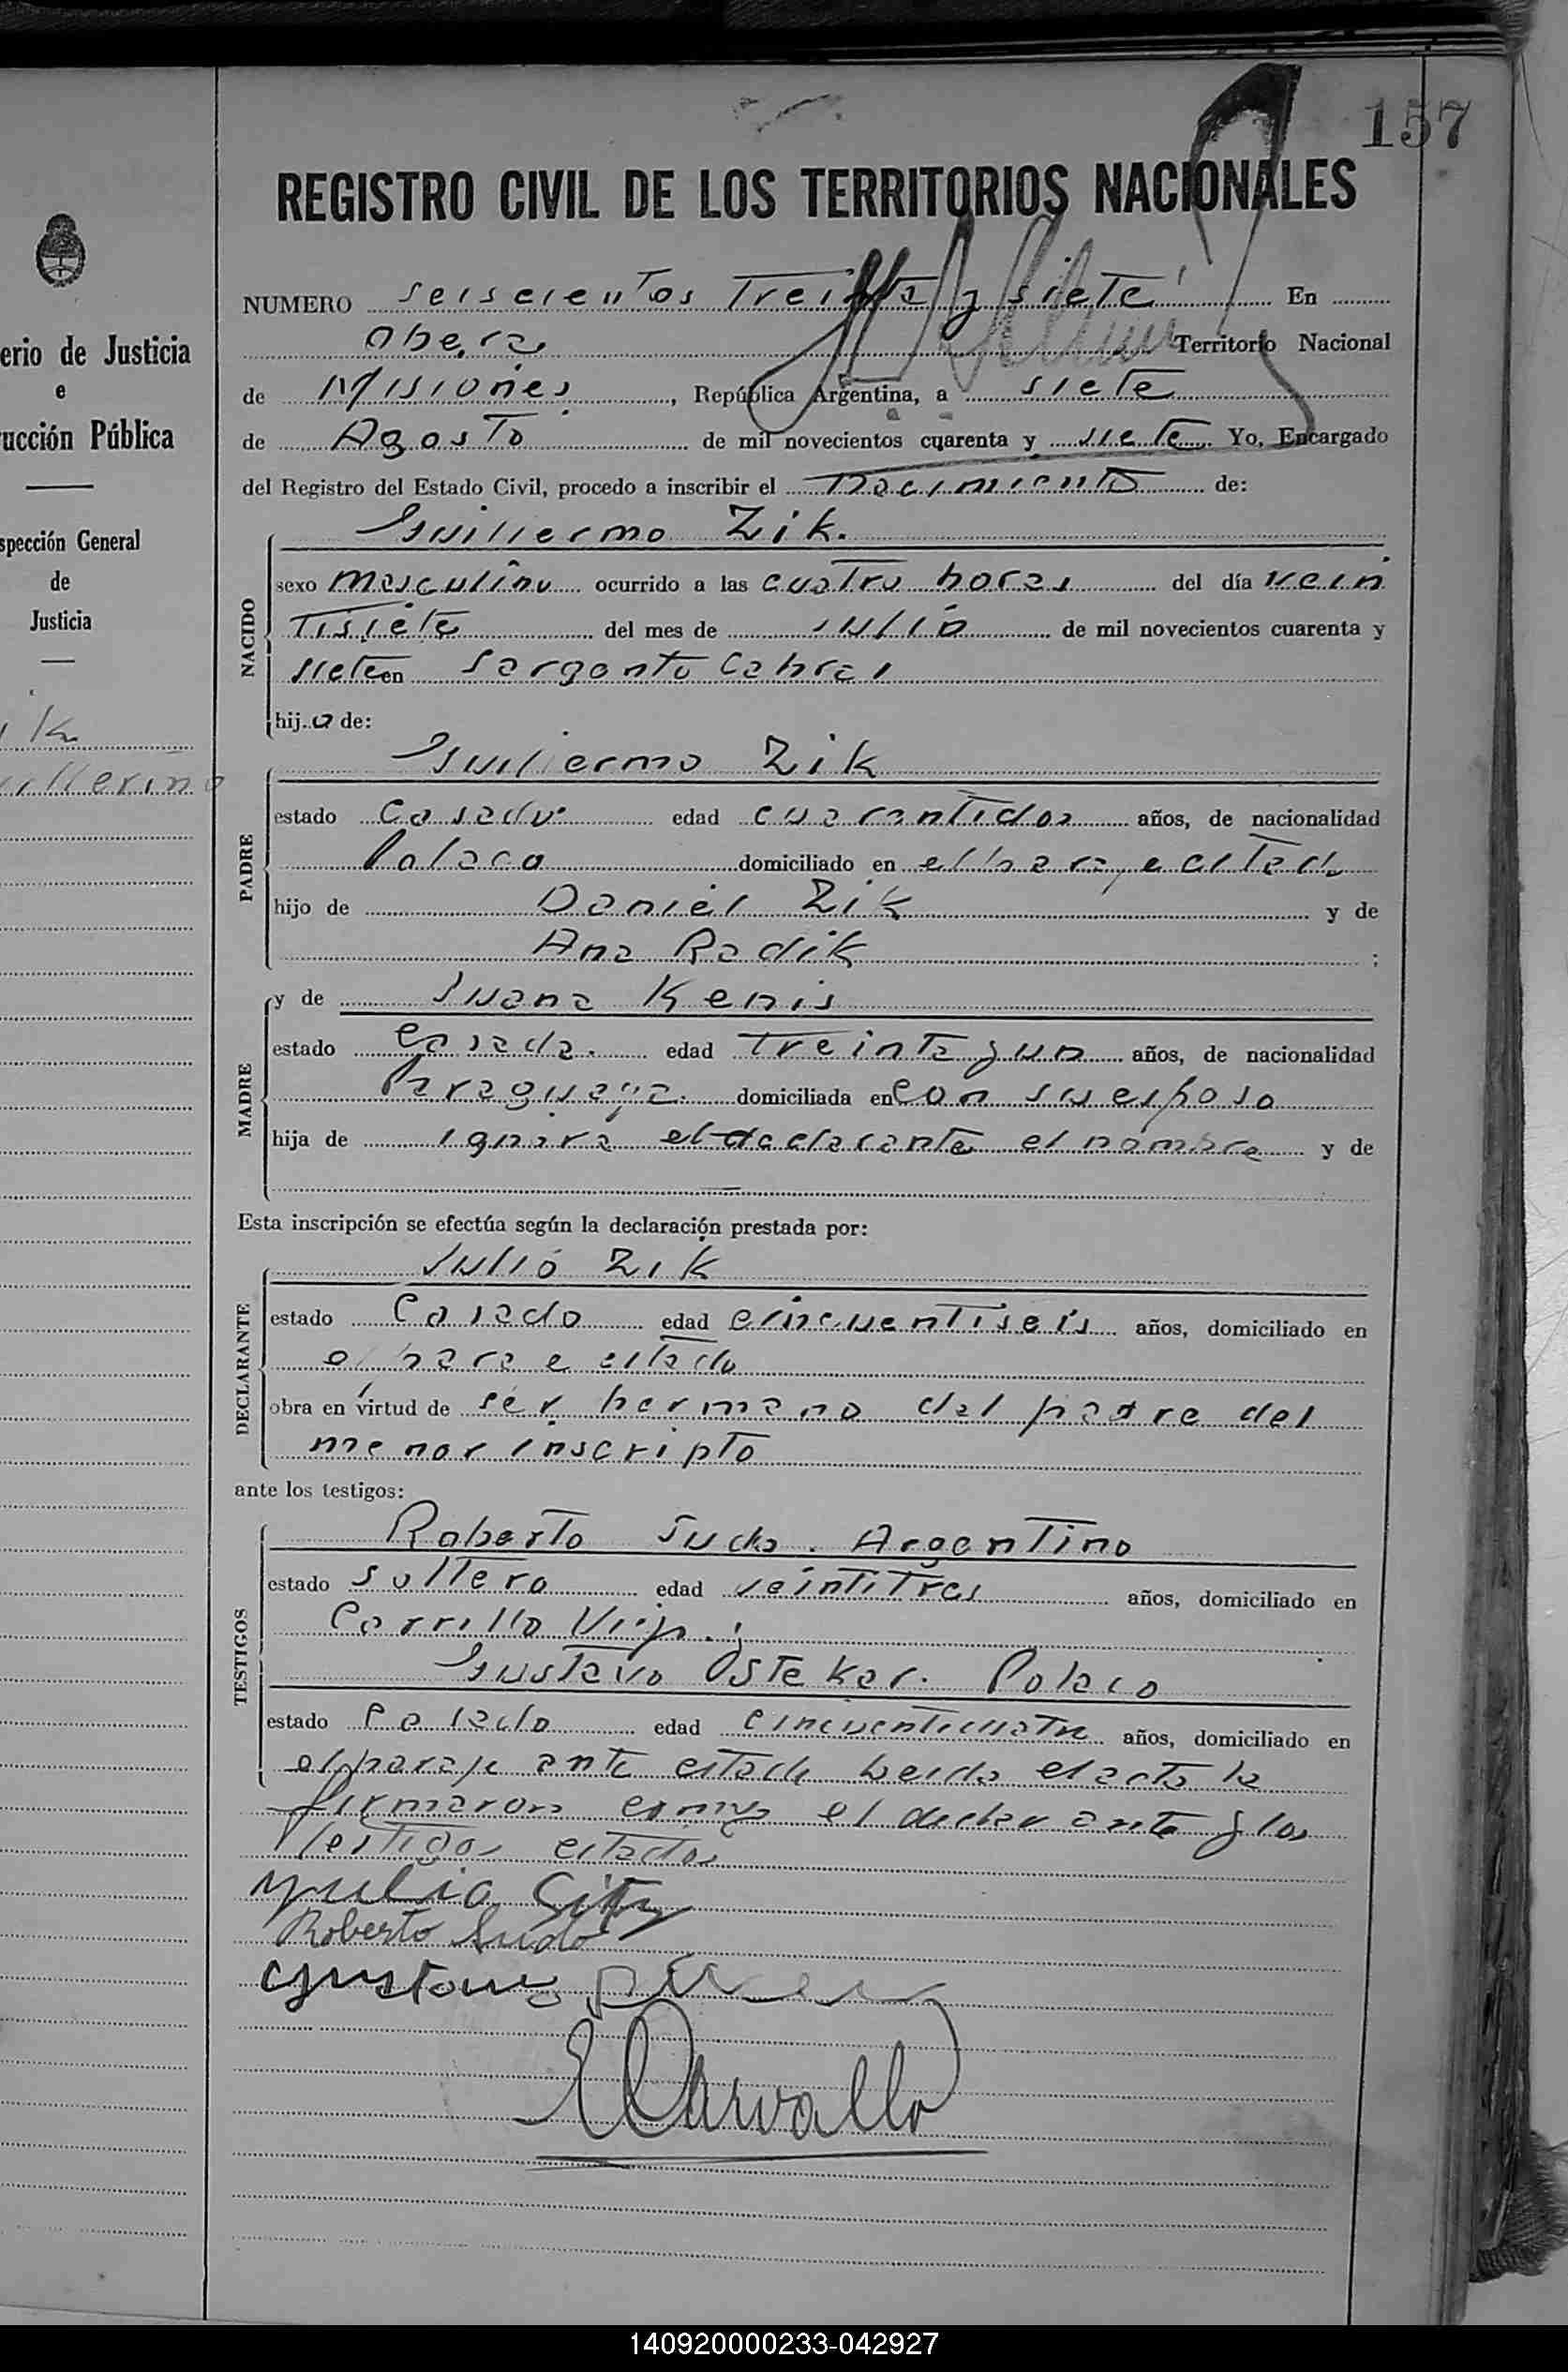 157
REGISTRO CIVIL DE LOS TERRITORIOS NACIONALES
erio de Justicia
e
ucción Pública
spección General
de
Justicia
ik
illermo
NUMERO seiscientos Treinta y siete En
Obera Territorio Nacional
de Misiones, República Argentina, a siete
de Agosto de mil novecientos cuarenta y siete. Yo, Encargado
del Registro del Estado Civil, procedo a inscribir el nacimiento de:
NACIDO
Guillermo Zik.
sexo masculino ocurrido a las cuatro horas del día vein
Tisiete del mes de Julio de mil novecientos cuarenta y
siete en Sargento Cabral
hijo de:
PADRE
Guillermo Zik
estado Casado edad cuarentidos años, de nacionalidad
Polaco domiciliado en el paraje citado
hijo de Daniel Zik y de
Ana Radik ;
MADRE
y de Juana Kenis
estado Casada. edad Treinta y un años, de nacionalidad
Paraguaya. domiciliada en con su esposo
hija de ignora el declarante el nombre y de
Esta inscripción se efectúa según la declaración prestada por:
DECLARANTE
Julio Zik
estado Casado edad cincuentiseis años, domiciliado en
citado
obra en virtud de ser hermano del padre del
menor inscripto
ante los testigos:
TESTIGOS
Roberto Sudo. Argentino
estado soltero edad veintitres años, domiciliado en
Cerrillo Viejo. y
Gustavo Osteker. Polaco
estado Casado edad cincuenticuatro años, domiciliado en
el paraje ante citado Leida el acta la
firmaron el declarante y los
Testigos citados
Yulio
Roberto Sudo
Gustavo
E Carvallo
140920000233-042927